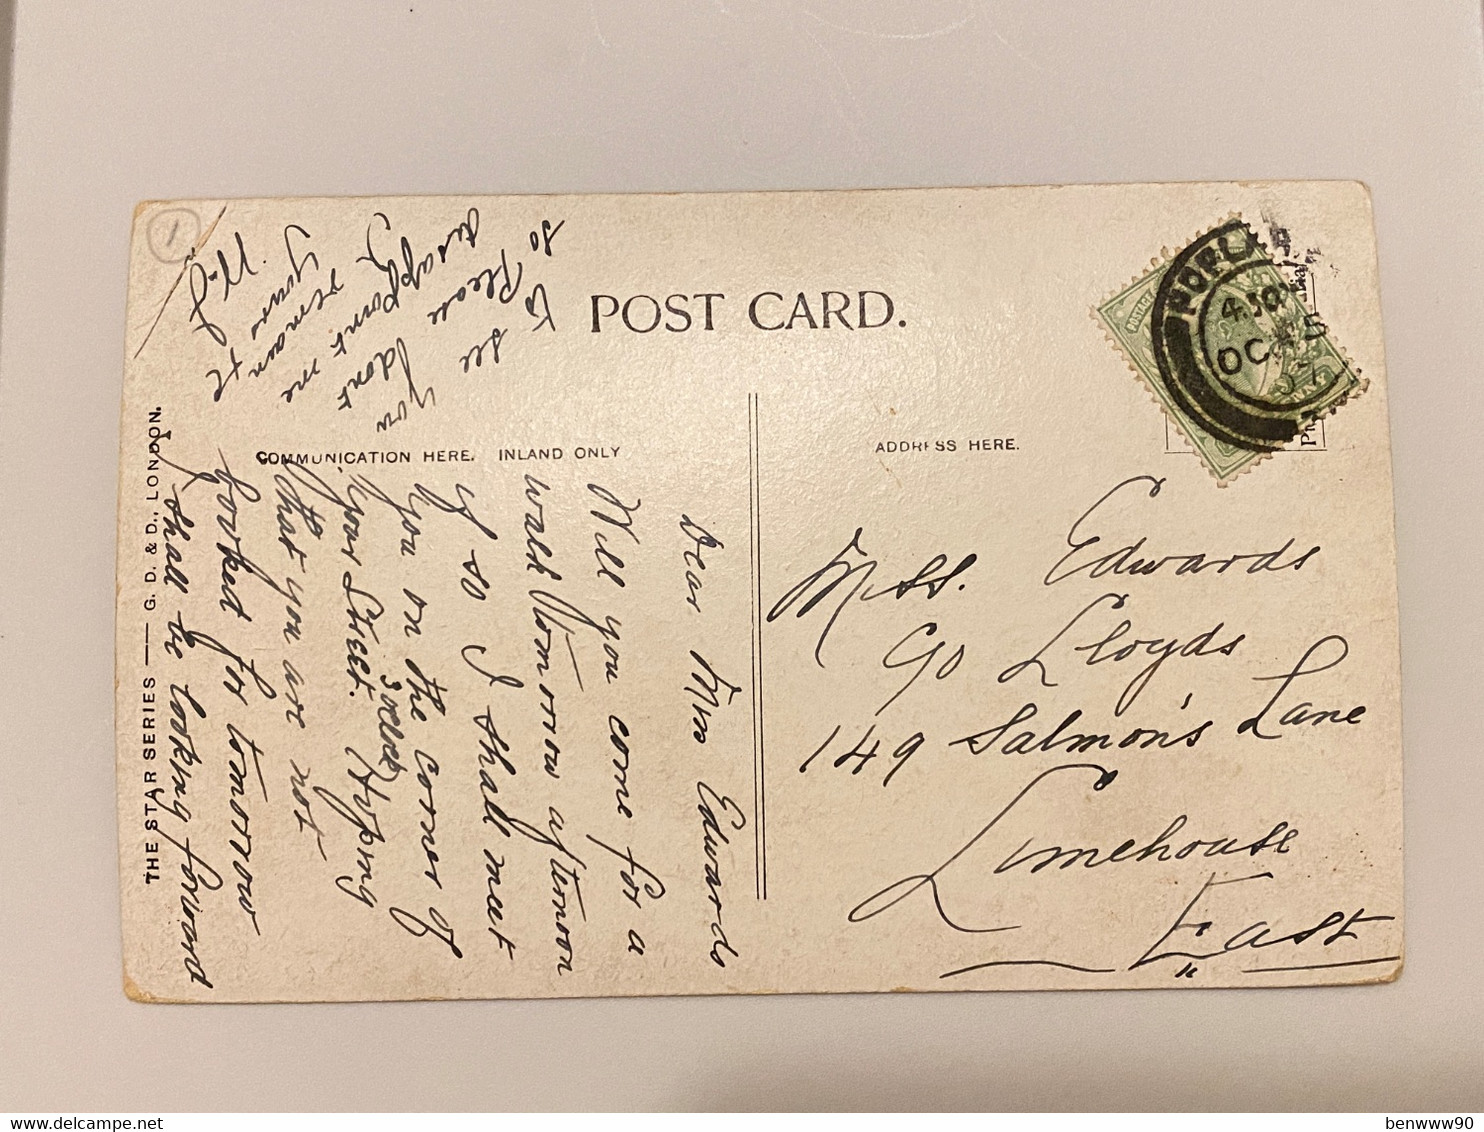 POST CARD.
COMMUNICATION HERE. INLAND ONLY
ADDRESS HERE.
THE STAR SERIES — G. D. & D., LONDON.
POPLAR
4.30
OC 5
07
Miss. Edwards
c/o Lloyds
149 Salmon's Lane
Limehouse
East
Dear Miss Edwards
Will you come for a
walk tomorrow afternoon
if so I shall meet
you on the corner of
your Street. 3 oclock Hoping
that you are not
booked for tomorrow
I shall be looking forward
to see you
so Please dont
disapoint me
I remain
yours
1
benwww90